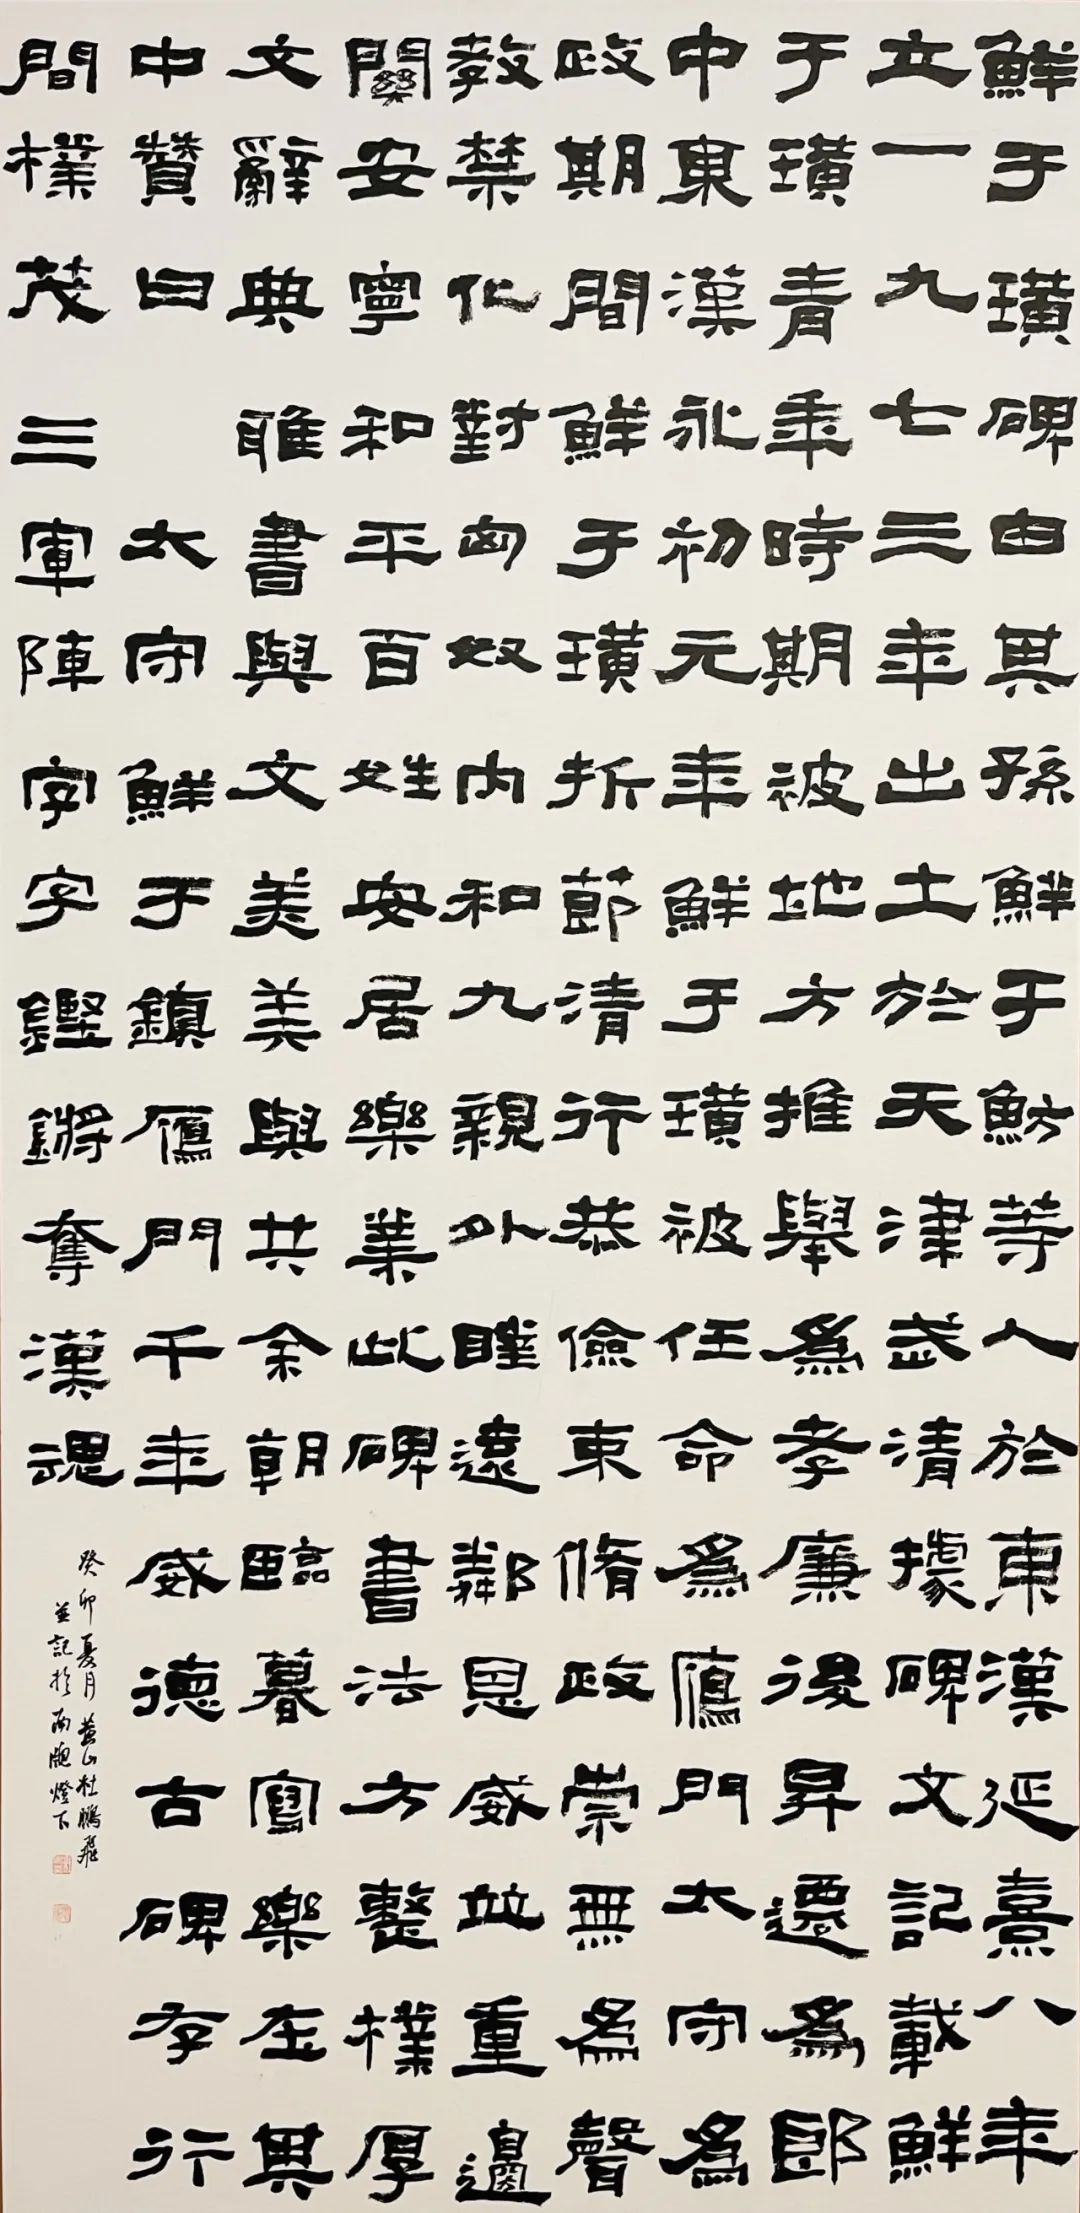 鮮于璜碑由其孫鮮于魴等人於東漢延熹八年
立一九七三年出土於天津武清據碑文記載鮮
于璜青年時期被地方推舉爲孝廉後昇遷爲郎
中東漢永初元年鮮于璜被任命爲鴈門太守爲
政期間鮮于璜折節清行恭儉束脩政崇無爲聲
教禁化對匈奴內和九親外睦遠鄰恩威並重邊
關安寧和平百姓安居樂業此碑書法方整樸厚
文辭典雅書與文美美與共余朝臨暮寫樂在其
中贊曰 太守鮮于鎮鴈門千年威德古碑存行
間樸茂三軍陣字字鏗鏘奪漢魂
癸卯夏月黃山杜鵬飛
並記於南牕燈下